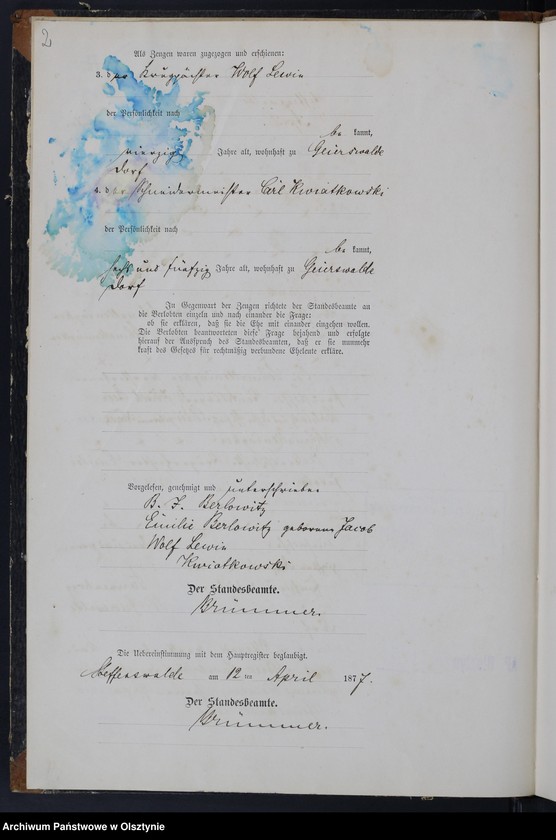 2
Als Zeugen waren zugezogen und erschienen:
3. der Krugpächter Wolf Lewin
der Persönlichkeit nach
be kannt,
vierzig Jahre alt, wohnhaft zu Geierswalde
Dorf
4. der Schneidermeister Carl Kwiatkowski
der Persönlichkeit nach
be kannt,
sechs und fünfzig Jahre alt, wohnhaft zu Geierswalde
Dorf
In Gegenwart der Zeugen richtete der Standesbeamte an
die Verlobten einzeln und nach einander die Frage:
ob sie erklären, daß sie die Ehe mit einander eingehen wollen.
Die Verlobten beantworteten diese Frage bejahend und erfolgte
hierauf der Ausspruch des Standesbeamten, daß er sie nunmehr
kraft des Gesetzes für rechtmäßig verbundene Eheleute erkläre.
Vorgelesen, genehmigt und unterschrieben
B. J. Berlowitz
Emilie Berlowitz geborene Jacob
Wolf Lewin
Kwiatkowski
Der Standesbeamte.
Brümmer.
Die Uebereinstimmung mit dem Hauptregister beglaubigt.
am 12 ten April 1877.
Der Standesbeamte.
Brümmer.
Archiwum Państwowe w Olsztynie